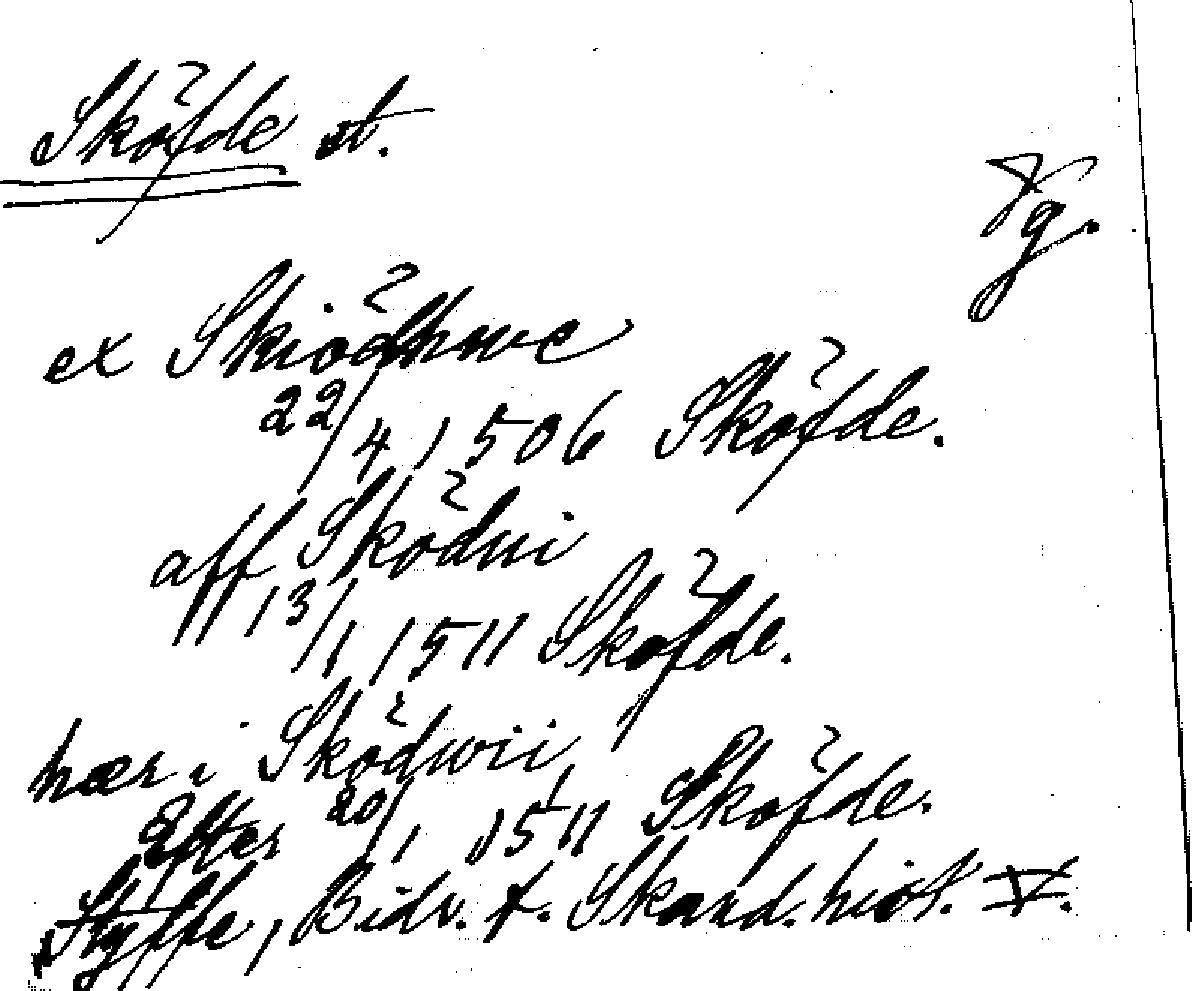 Sköfde st.
Vg.
ex Skiödhwe
22/4 1506 Sköfde.
aff Sködwi
13/1 1511 Sköfde.
hær i Sködwii
Efter 20/1 1511 Sköfde.
Styffe, Bidr. t. Skand. hist. V.